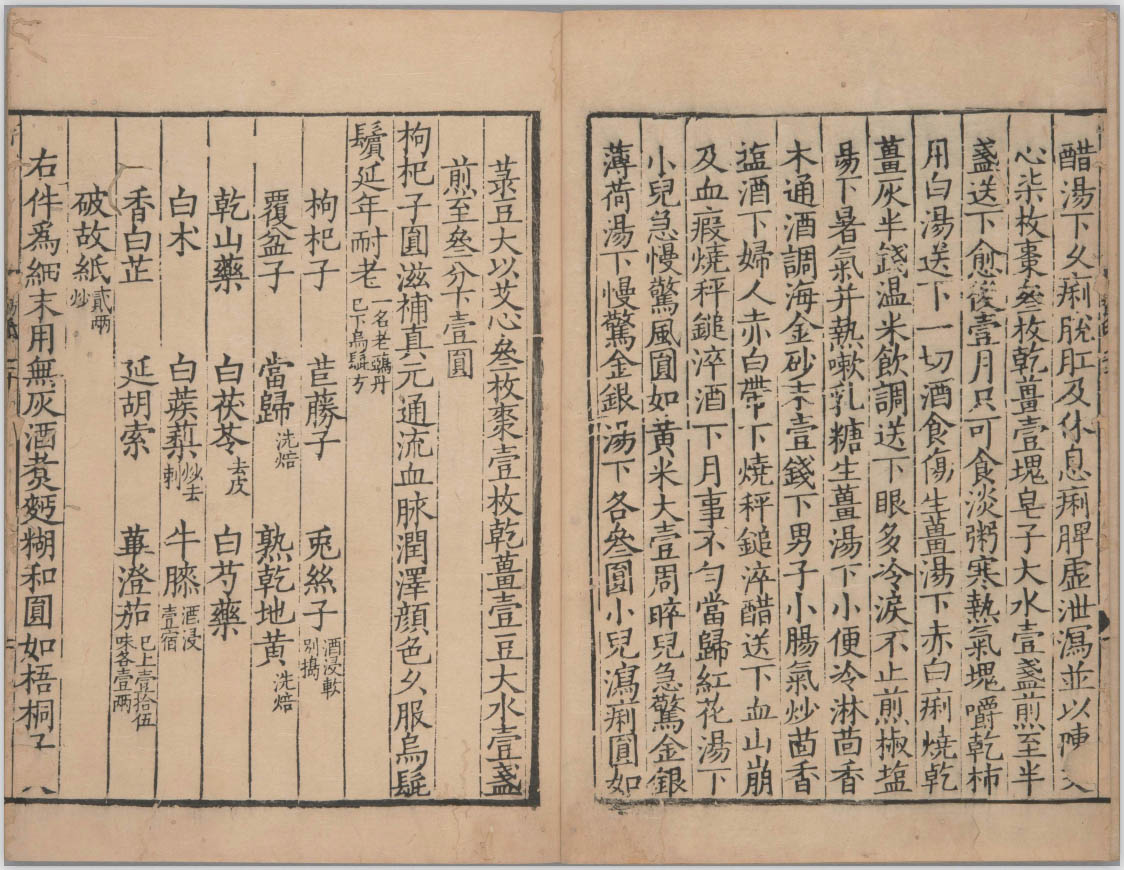 醋湯下久痢脫肛及休息痢脾虛泄瀉並以陳艾
心柒枚棗叄枚乾薑壹塊皂子大水壹盞煎至半
盞送下愈後壹月只可食淡粥寒熱氣塊嚼乾柿
用白湯送下一切酒食傷生薑湯下赤白痢燒乾
薑灰半錢温米飲調送下眼多冷淚不止煎椒塩
湯下暑氣并熱嗽乳糖生薑湯下小便冷淋茴香
木通酒調海金砂末壹錢下男子小腸氣炒茴香
塩酒下婦人赤白帶下燒秤鎚淬醋送下血山崩
及血瘕燒秤鎚淬酒下月事不匀當歸紅花湯下
小兒急慢驚風圓如黃米大壹周晬兒急驚金銀
薄荷湯下慢驚金銀湯下各叄圓小兒瀉痢圓如
菉豆大以艾心叄枚棗壹枚乾薑壹豆大水壹盞
煎至叄分下壹圓
枸杞子圓滋補真元通流血脉潤澤顔色久服烏髭
鬚延年耐老一名老鸛丹已下烏髭方
枸杞子 苣蕂子 兎絲子酒浸軟別擣
覆盆子 當歸洗焙 熟乾地黄洗焙
乾山藥 白茯苓去皮 白芍藥
白朮 白蒺䔧炒去刺 牛膝酒浸壹宿
香白芷 延胡索 蓽澄茄已上壹拾伍味各壹两
破故紙貳两炒
右件爲細末用無灰酒煑麪糊和圓如梧桐子